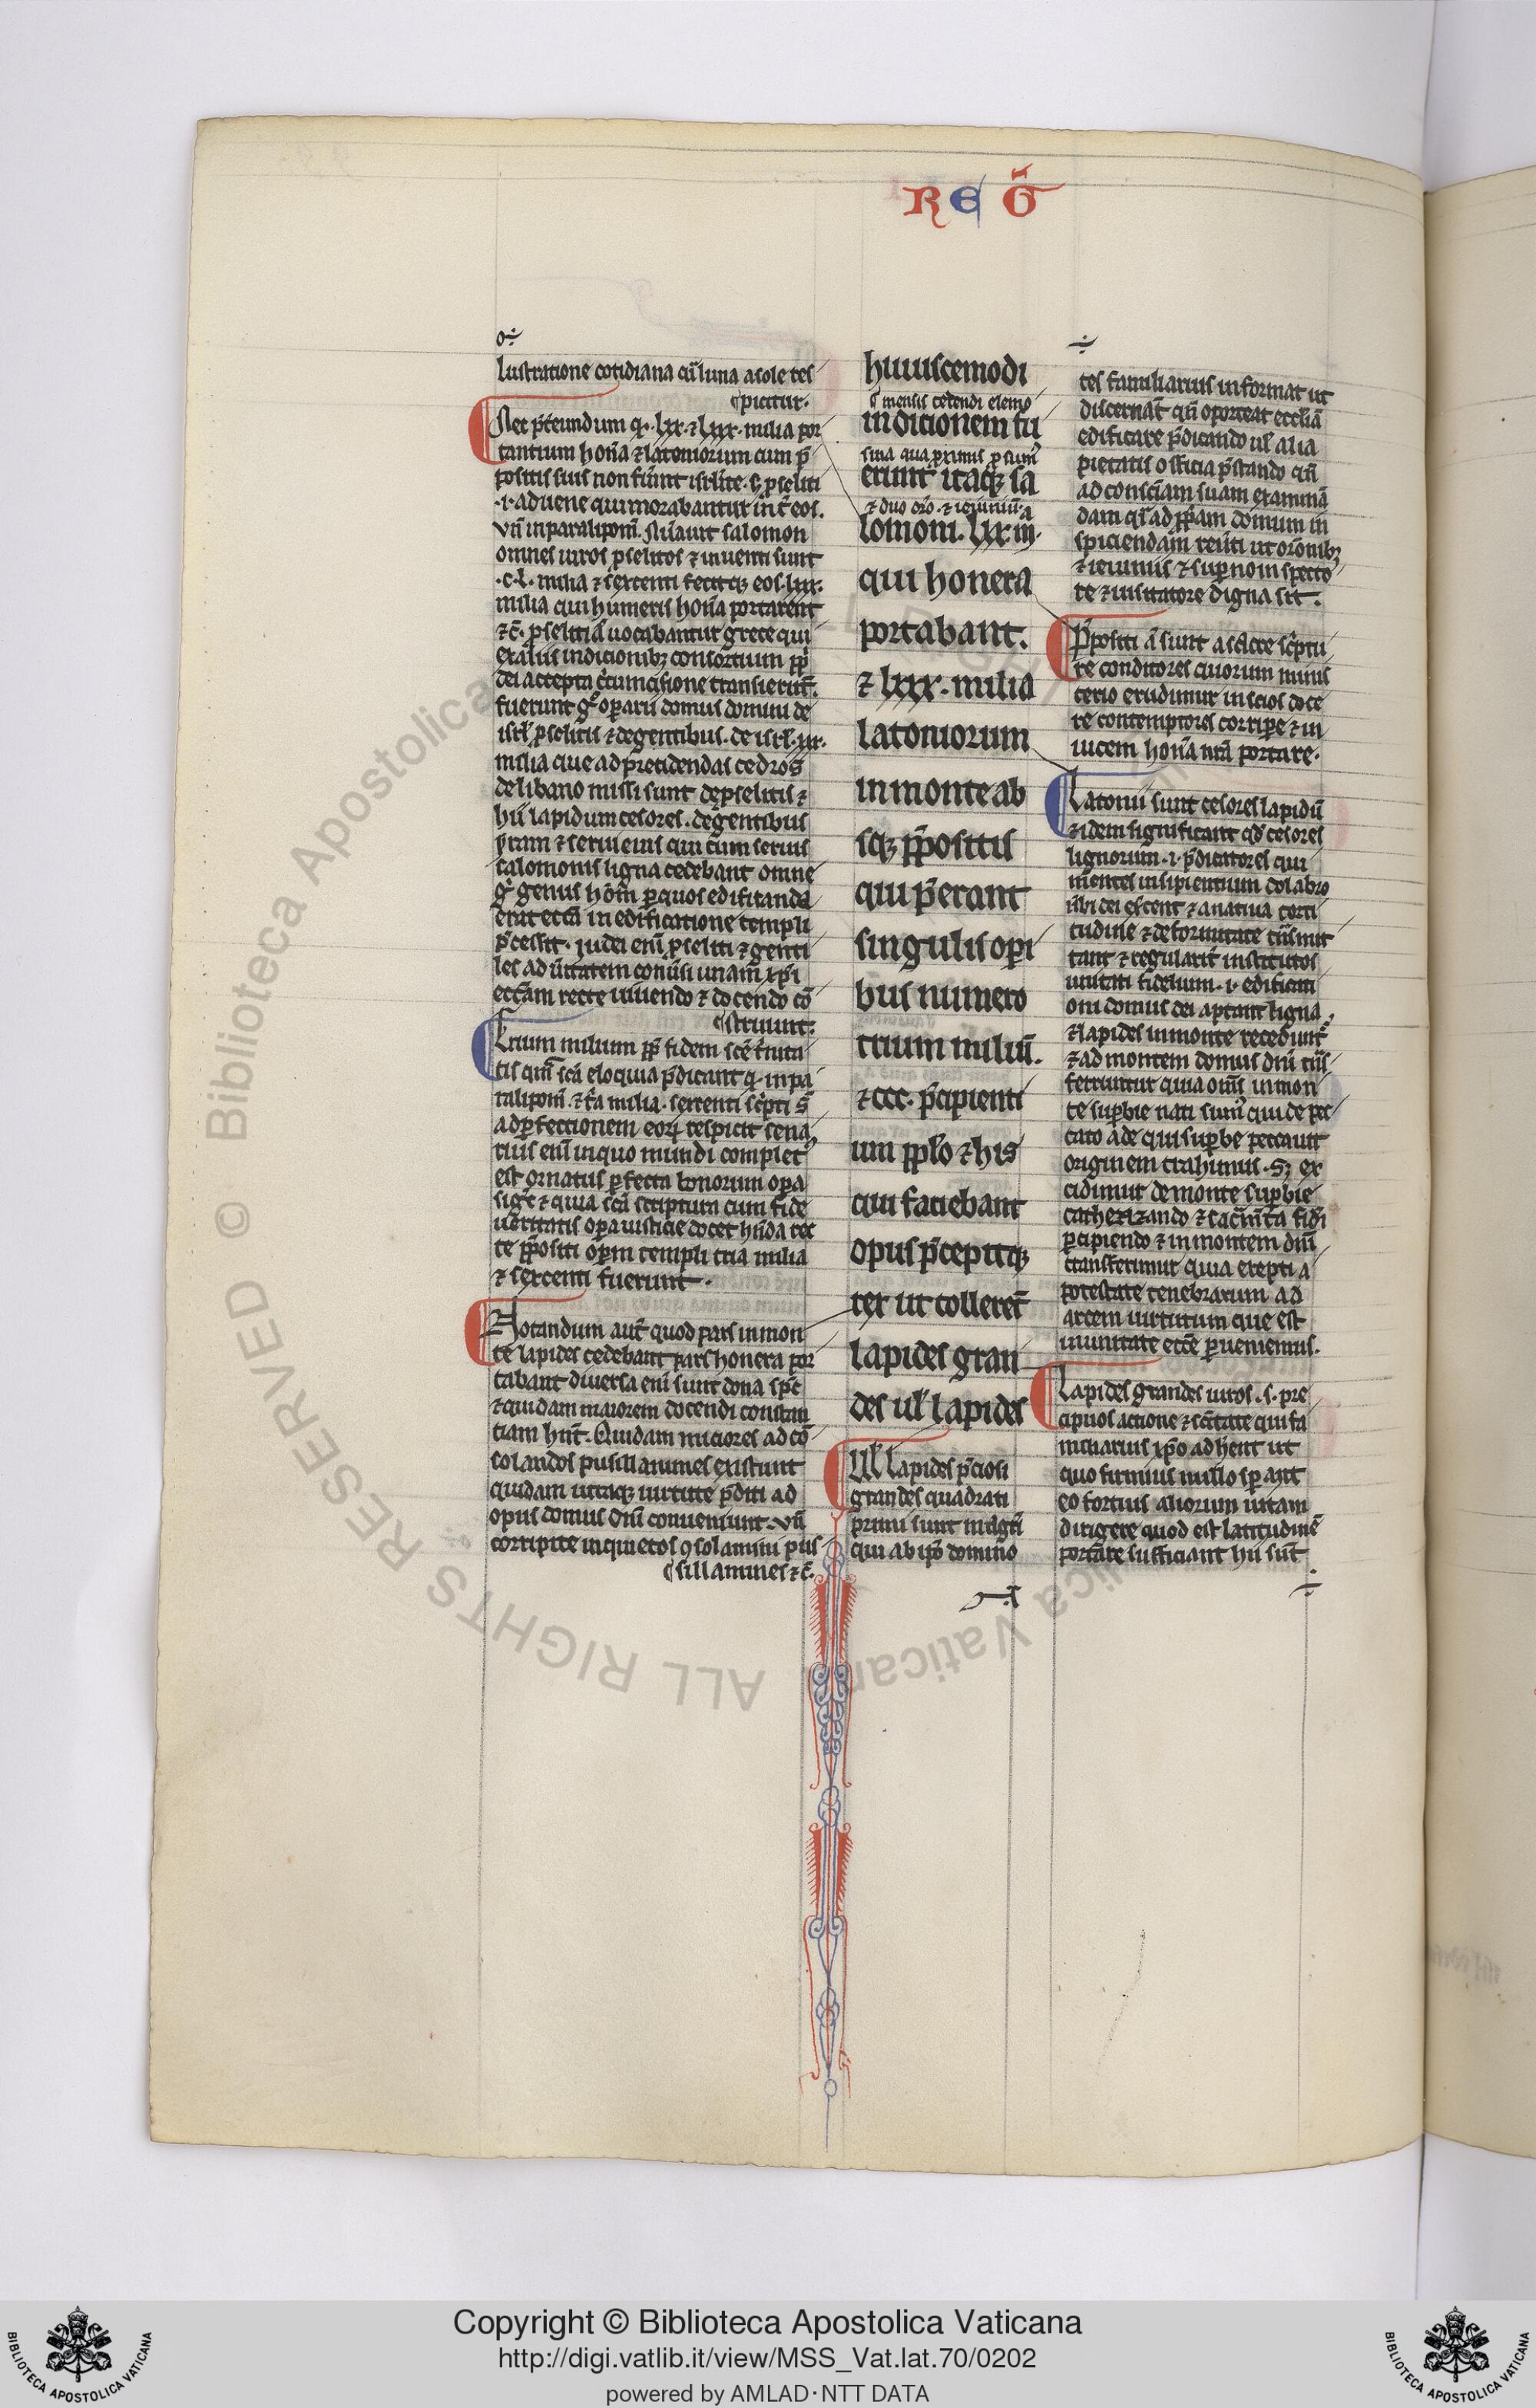 REG̃
lustratione cotidiana cũ luna a sole res
picitur.
Nec p̃tereundum q̃. lxx. ⁊ lxxx. milia por
tantium hoña ⁊ latomorum cum p̃
positis suis non fũint isr̃lite. s; p̃seliti
.i. aduene qui morabantur int̃ eos.
vñ in paralipom̃. Nũauit salomon
omnes uiros p̃selitos ⁊ inuenti sunt
.c.l. milia ⁊ sexcenti fecitq; eos .lxx.
milia qui humeris hoña portarent
⁊c̃. p̃seliti ã uocabantur grece qui
ex aliis indicionib; consortium pp̃li
dei accepta c̃cumcisione transierũt.
fuerunt g̊ oparii domus domini de
isr̃l p̃selitis ⁊ de gentibus. de isr̃l .xxx.
milia que ad precidendas cedros
de libano missi sunt de p̃selitis ⁊
hii lapidum cesores. de gentibus
yram ⁊ serui eius qui cum seruis
salomonis ligna cedebant omne
g̊ genus hoĩm p quos edificanda
erat ecc̃a in edificatione templi
p̃cessit. iudei eni p̃seliti ⁊ genti
les ad ũitatem conũsi unam xp̃i
ecc̃am recte uiuendo ⁊ docendo cõ
struunt.
Trium milium pp̃ fidem sc̃e t̃nita
tis qm̃ sc̃a eloquia p̃dicant q̃ in pa
ralipom̃. ⁊ t̃a milia. sexcenti sc̃pti s̃
ad pfectionem eoꝝ respicit sena
rius eni in quo mundi complet᷒
est ornatus pfecta bonorum opa
sig̃t ⁊ quia sc̃a scriptura cum fide
ueritatis opa iusticie docet hñda rec
te p̃positi opum templi tria milia
⁊ sexcenti fuerunt.
Notandum aut̃ quod pars in mon
te lapides cedebant pars honera por
tabant diuersa eni sunt dona sp̃c
⁊ quidam maiorem docendi constan
tiam hñt. Quidam miciores ad cõ
solandos pusillanimes existunt
quidam utraq; uirtute p̃diti ad
opus domus dñi conueniunt. vñ
corripite inquietos ꝯsolamini pus
sillanimes ⁊c̃.
huiuscemodi
mensis cedendi elemo
indicionem fu
sina qua proximis
erunt itaq; sa
⁊ duo oro. ⁊ ieiuniũ
lomoni. lxx m̃.
qui honera
portabant.
⁊ lxxx. milia
latomorum
in monte ab
sq; p̃positis
qui p̃erant
singulis opi
bus numero
trium miliũ.
⁊ ccc. p̃cipienti
um pp̃lo ⁊ his
qui faciebant
opus p̃cepitq;
rex ut tollerẽt
lapides gran
des ul̃ lapides
Ul̃ lapides p̃ciosi
grandes quadrati
primi sunt magr̃i
qui ab ip̃o domino
tes familiarius informat ut
discernat̃ qñ oporteat eccliã
edificare p̃dicando ul̃ alia
pietatis officia p̃stando qñ
ad consc̃iam suam examinã
dam q̃si ad pp̃am domum in
spiciendam reũti ut oroñib;
⁊ ieiuniis ⁊ supno inspecto
re ⁊ uisitatore digna sit.
P̃positi ã sunt a sc̃icte sc̃ptu
re conditores quorum minis
terio erudimur inscios doce
re contemptores corripe ⁊ in
uicem hoña nr̃a portare.
Latomi sunt cesores lapidũ
⁊ idem significant qd̃ cesores
lignorum .i. p̃dicatores qui
mentes insipientium dolabro
ũbi dei excent ⁊ a natiua torti
tudine ⁊ deformitate tũsmu
tant ⁊ regularit̃ institutos
unitati fidelium .i. edificati
oni domus dei aptant ligna
⁊ lapides in monte recedunt᷒
⁊ ad montem domus dñi tũs
feruntur quia om̃s in mon
te supbie nati sum᷒ qui de pec
cato ade qui supbe peccauit
originem trahimus. S; ex
cidimur de monte supbie
cathezizando ⁊ sacr̃mt̃a fidei
pcipiendo ⁊ in montem dñi
transferimur quia erepti a
potestate tenebrarum ad
arcem uirtutum que est
in unitate ecc̃e peruenimus.
Lapides grandes uiros .s. pre
cipuos actione ⁊ sc̃itate qui fa
miliarius xp̃o adhẽnt ut
quo firmius in illo spant
eo fortius aliorum uitam
dirigere quod est latitudinẽ
portare sufficiant hii sũt
Copyright © Biblioteca Apostolica Vaticana
http://digi.vatlib.it/view/MSS_Vat.lat.70/0202
powered by AMLAD·NTT DATA